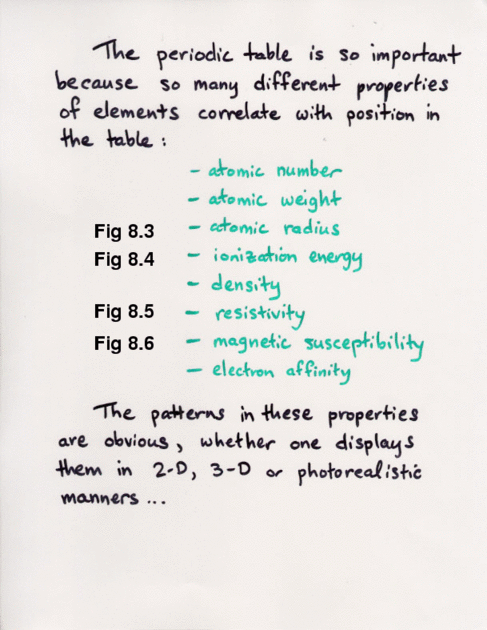 The periodic table is so important
because so many different properties
of elements correlate with position in
the table :
- atomic number
- atomic weight
Fig 8.3 - atomic radius
Fig 8.4 - ionization energy
- density
Fig 8.5 - resistivity
Fig 8.6 - magnetic susceptibility
- electron affinity
The patterns in these properties
are obvious, whether one displays
them in 2-D, 3-D or photorealistic
manners ...